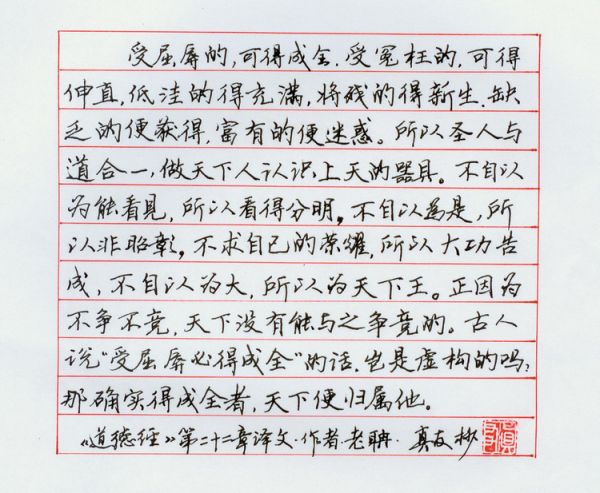 受屈辱的,可得成全.受冤枉的,可得
伸直,低洼的得充满,将残的得新生.缺
乏的便获得,富有的便迷惑。所以圣人与
道合一,做天下人认识上天的器具。不自以
为能看見,所以看得分明。不自以為是,所
以非昭彰。不求自己的荣耀,所以大功告
成,不自以为大,所以为天下王。正因为
不争不竞,天下没有能与之争竞的。古人
说“受屈辱必得成全”的话.岂是虚构的吗?
那确实得成全者,天下便归属他。
《道德经》第二十二章译文·作者老聃·真友抄